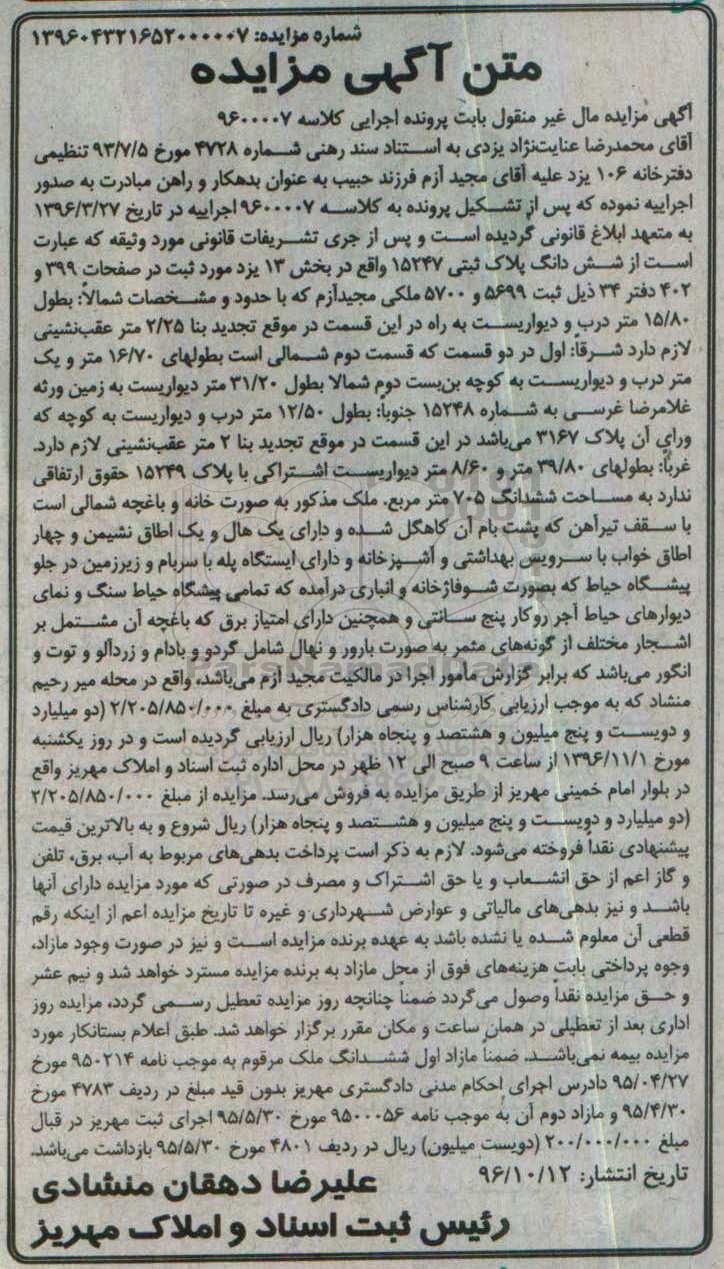 شماره مزایده: ۱۳۹۶۰۴۳۲۱۶۵۲۰۰۰۰۰۷
متن آگهی مزایده
آگهی مزایده مال غیر منقول بابت پرونده اجرایی کلاسه ۹۶۰۰۰۰۷
آقای محمدرضا عنایت‌نژاد یزدی به استناد سند رهنی شماره ۴۷۲۸ مورخ ۹۳/۷/۵ تنظیمی
دفترخانه ۱۰۶ یزد علیه آقای مجید آزم فرزند حبیب به عنوان بدهکار و راهن مبادرت به صدور
اجراییه نموده که پس از تشکیل پرونده به کلاسه ۹۶۰۰۰۰۷ اجراییه در تاریخ ۱۳۹۶/۳/۲۷
به متعهد ابلاغ قانونی گردیده است و پس از جری تشریفات قانونی مورد وثیقه که عبارت
است از شش دانگ پلاک ثبتی ۱۵۲۴۷ واقع در بخش ۱۳ یزد مورد ثبت در صفحات ۳۹۹ و
۴۰۲ دفتر ۳۴ ذیل ثبت ۵۶۹۹ و ۵۷۰۰ ملکی مجیدآزم که با حدود و مشخصات شمالاً: بطول
۱۵/۸۰ متر درب و دیواریست به راه در این قسمت در موقع تجدید بنا ۲/۲۵ متر عقب‌نشینی
لازم دارد شرقاً: اول در دو قسمت که قسمت دوم شمالی است بطولهای ۱۶/۷۰ متر و یک
متر درب و دیواریست به کوچه بن‌بست دوم شمالا بطول ۳۱/۲۰ متر دیواریست به زمین ورثه
غلامرضا غرسی به شماره ۱۵۲۴۸ جنوباً: بطول ۱۲/۵۰ متر درب و دیواریست به کوچه که
ورای آن پلاک ۳۱۶۷ می‌باشد در این قسمت در موقع تجدید بنا ۲ متر عقب‌نشینی لازم دارد.
غرباً: بطولهای ۳۹/۸۰ متر و ۸/۶۰ متر دیواریست اشتراکی با پلاک ۱۵۲۴۹ حقوق ارتفاقی
ندارد به مساحت ششدانگ ۷۰۵ متر مربع. ملک مذکور به صورت خانه و باغچه شمالی است
با سقف تیرآهن که پشت بام آن کاهگل شده و دارای یک هال و یک اطاق نشیمن و چهار
اطاق خواب با سرویس بهداشتی و آشپزخانه و دارای ایستگاه پله با سربام و زیرزمین در جلو
پیشگاه حیاط که بصورت شوفاژخانه و انباری درآمده که تمامی پیشگاه حیاط سنگ و نمای
دیوارهای حیاط آجر روکار پنج سانتی و همچنین دارای امتیاز برق که باغچه آن مشتمل بر
اشجار مختلف از گونه‌های مثمر به صورت بارور و نهال شامل گردو و بادام و زردآلو و توت و
انگور می‌باشد که برابر گزارش مامور اجرا در مالکیت مجید آزم می‌باشد، واقع در محله میر رحیم
منشاد که به موجب ارزیابی کارشناس رسمی دادگستری به مبلغ ۲/۲۰۵/۸۵۰/۰۰۰ (دو میلیارد
و دویست و پنج میلیون و هشتصد و پنجاه هزار) ریال ارزیابی گردیده است و در روز یکشنبه
مورخ ۱۳۹۶/۱۱/۱ از ساعت ۹ صبح الی ۱۲ ظهر در محل اداره ثبت اسناد و املاک مهریز واقع
در بلوار امام خمینی مهریز از طریق مزایده به فروش می‌رسد. مزایده از مبلغ ۲/۲۰۵/۸۵۰/۰۰۰
(دو میلیارد و دویست و پنج میلیون و هشتصد و پنجاه هزار) ریال شروع و به بالاترین قیمت
پیشنهادی نقداً فروخته می‌شود. لازم به ذکر است پرداخت بدهی‌های مربوط به آب، برق، تلفن
و گاز اعم از حق انشعاب و یا حق اشتراک و مصرف در صورتی که مورد مزایده دارای آنها
باشد و نیز بدهی‌های مالیاتی و عوارض شهرداری و غیره تا تاریخ مزایده اعم از اینکه رقم
قطعی آن معلوم شده یا نشده باشد به عهده برنده مزایده است و نیز در صورت وجود مازاد،
وجوه پرداختی بابت هزینه‌های فوق از محل مازاد به برنده مزایده مسترد خواهد شد و نیم عشر
و حق مزایده نقداً وصول می‌گردد ضمناً چنانچه روز مزایده تعطیل رسمی گردد، مزایده روز
اداری بعد از تعطیلی در همان ساعت و مکان مقرر برگزار خواهد شد. طبق اعلام بستانکار مورد
مزایده بیمه نمی‌باشد. ضمناً مازاد اول ششدانگ ملک مرقوم به موجب نامه ۹۵۰۲۱۴ مورخ
۹۵/۰۴/۲۷ دادرس اجرای احکام مدنی دادگستری مهریز بدون قید مبلغ در ردیف ۴۷۸۳ مورخ
۹۵/۴/۳۰ و مازاد دوم آن به موجب نامه ۹۵۰۰۰۵۶ مورخ ۹۵/۵/۳۰ اجرای ثبت مهریز در قبال
مبلغ ۲۰۰/۰۰۰/۰۰۰ (دویست میلیون) ریال در ردیف ۴۸۰۱ مورخ ۹۵/۵/۳۰ بازداشت می‌باشد.
تاریخ انتشار: ۹۶/۱۰/۱۲
علیرضا دهقان منشادی
رئیس ثبت اسناد و املاک مهریز
ParsNamadData